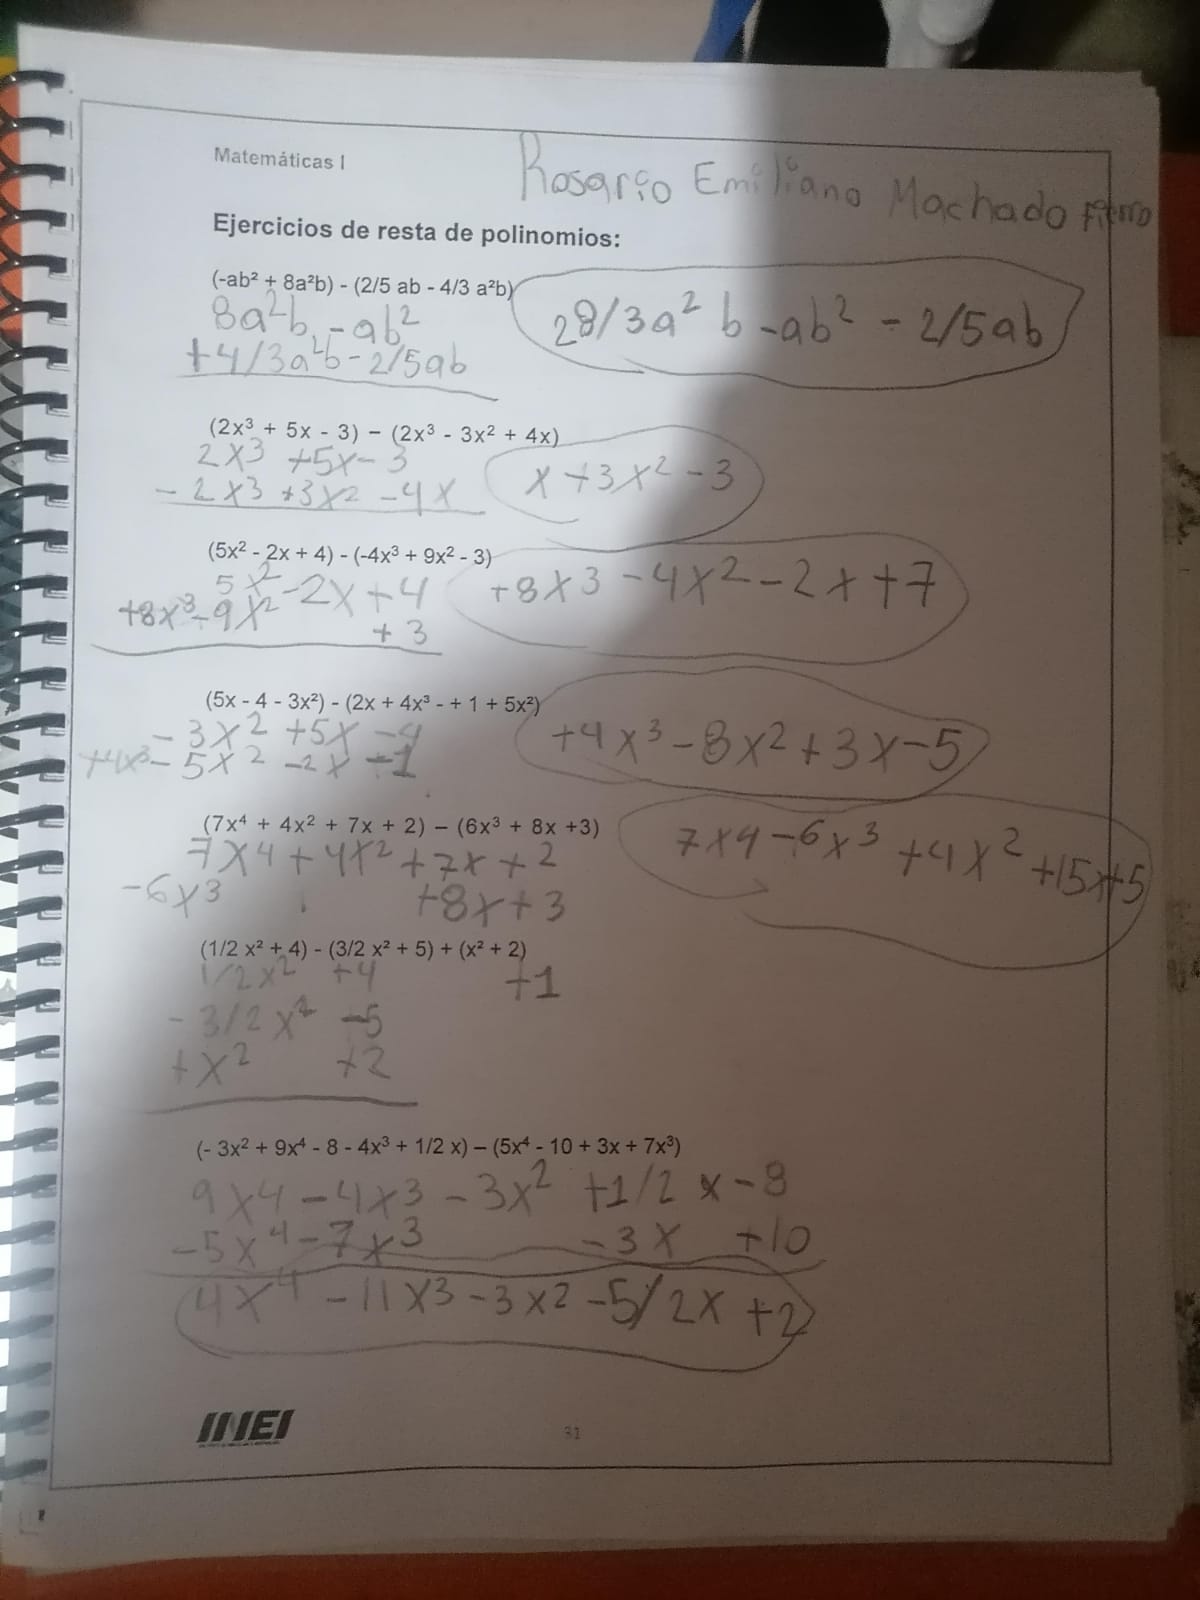 Matemáticas I
Rosario Emiliano Machado Fierro
Ejercicios de resta de polinomios:
(-ab² + 8a²b) - (2/5 ab - 4/3 a²b)
8a²b - ab²
+4/3a²b - 2/5ab
28/3a² b - ab² - 2/5ab
(2x³ + 5x - 3) – (2x³ - 3x² + 4x)
2x3 +5x - 3
- 2x3 +3x2 -4x
x +3x² -3
(5x² - 2x + 4) - (-4x³ + 9x² - 3)
5x² -2x +4
+8x³ -9x²
+3
+8x3 -4x2 -2x +7
(5x - 4 - 3x²) - (2x + 4x³ - + 1 + 5x²)
- 3x2 +5x -4
+4x3 - 5x2 -2x -1
+4x³ -8x² +3x -5
(7x⁴ + 4x² + 7x + 2) – (6x³ + 8x +3)
7x4 + 4x2 + 7x + 2
-6x3 +8x +3
7x4 -6x3 +4x2 +15x+5
(1/2 x² + 4) - (3/2 x² + 5) + (x² + 2)
1/2x² +4
- 3/2x² -5
+x² +2
+1
(- 3x² + 9x⁴ - 8 - 4x³ + 1/2 x) – (5x⁴ - 10 + 3x + 7x³)
9x4 -4x3 -3x² +1/2 x -8
-5x⁴ -7x3 -3x +10
4x⁴ -11x3 -3x2 -5/2x +2
INEI
31